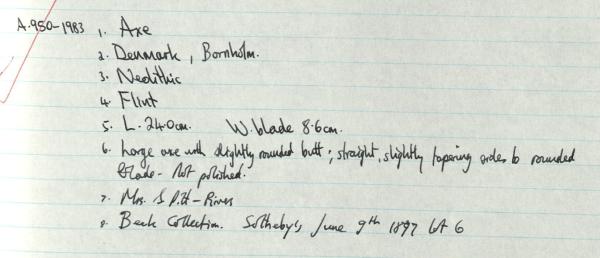 A.950-1983 1. Axe
2. Denmark, Bornholm.
3. Neolithic
4. Flint
5. L. 24.0cm. W. blade 8.6cm.
6. Large axe with slightly rounded butt; straight, slightly tapering sides to rounded
blade - Not polished.
7. Mrs. S Pitt-Rivers
8. Beck Collection. Sotheby's June 9th 1897 Lot 6